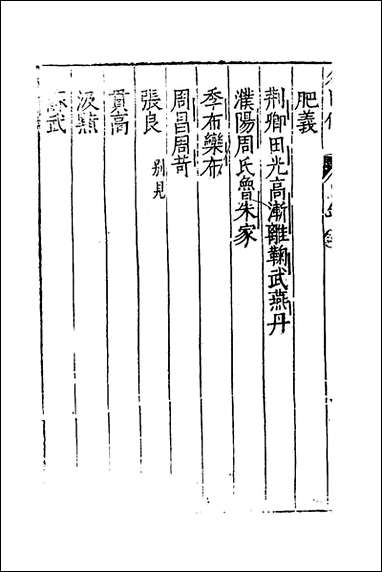 肥義
荆卿田光高漸離鞠武燕丹
濮陽周氏魯朱家
季布欒布
周昌周苛
張良 别見
貫高
汲黯
蘇武